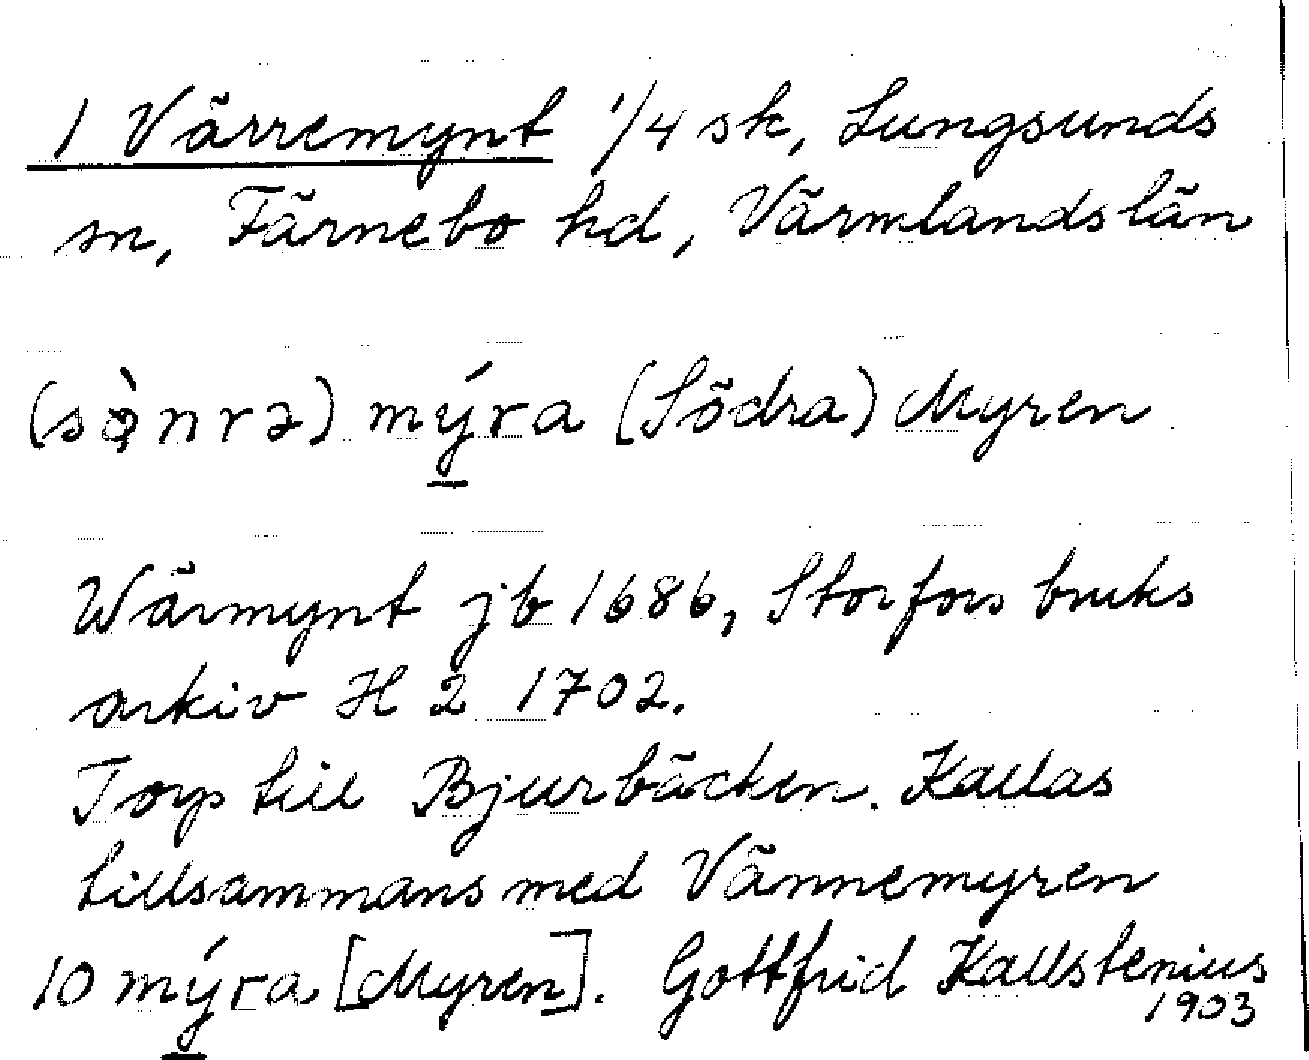 1 Värremynt 1/4 sk, Lungsunds
sn, Färnebo hd, Värmlands län
(sǫ̀nrə) mýra (Södra) Myren
Wärmynt jb 1686, Storfors bruks
arkiv H 2 1702.
Torp till Bjurbäcken. Kallas
tillsammans med Vännemyren
10 mýra [Myren]. Gottfrid Kallstenius
1903